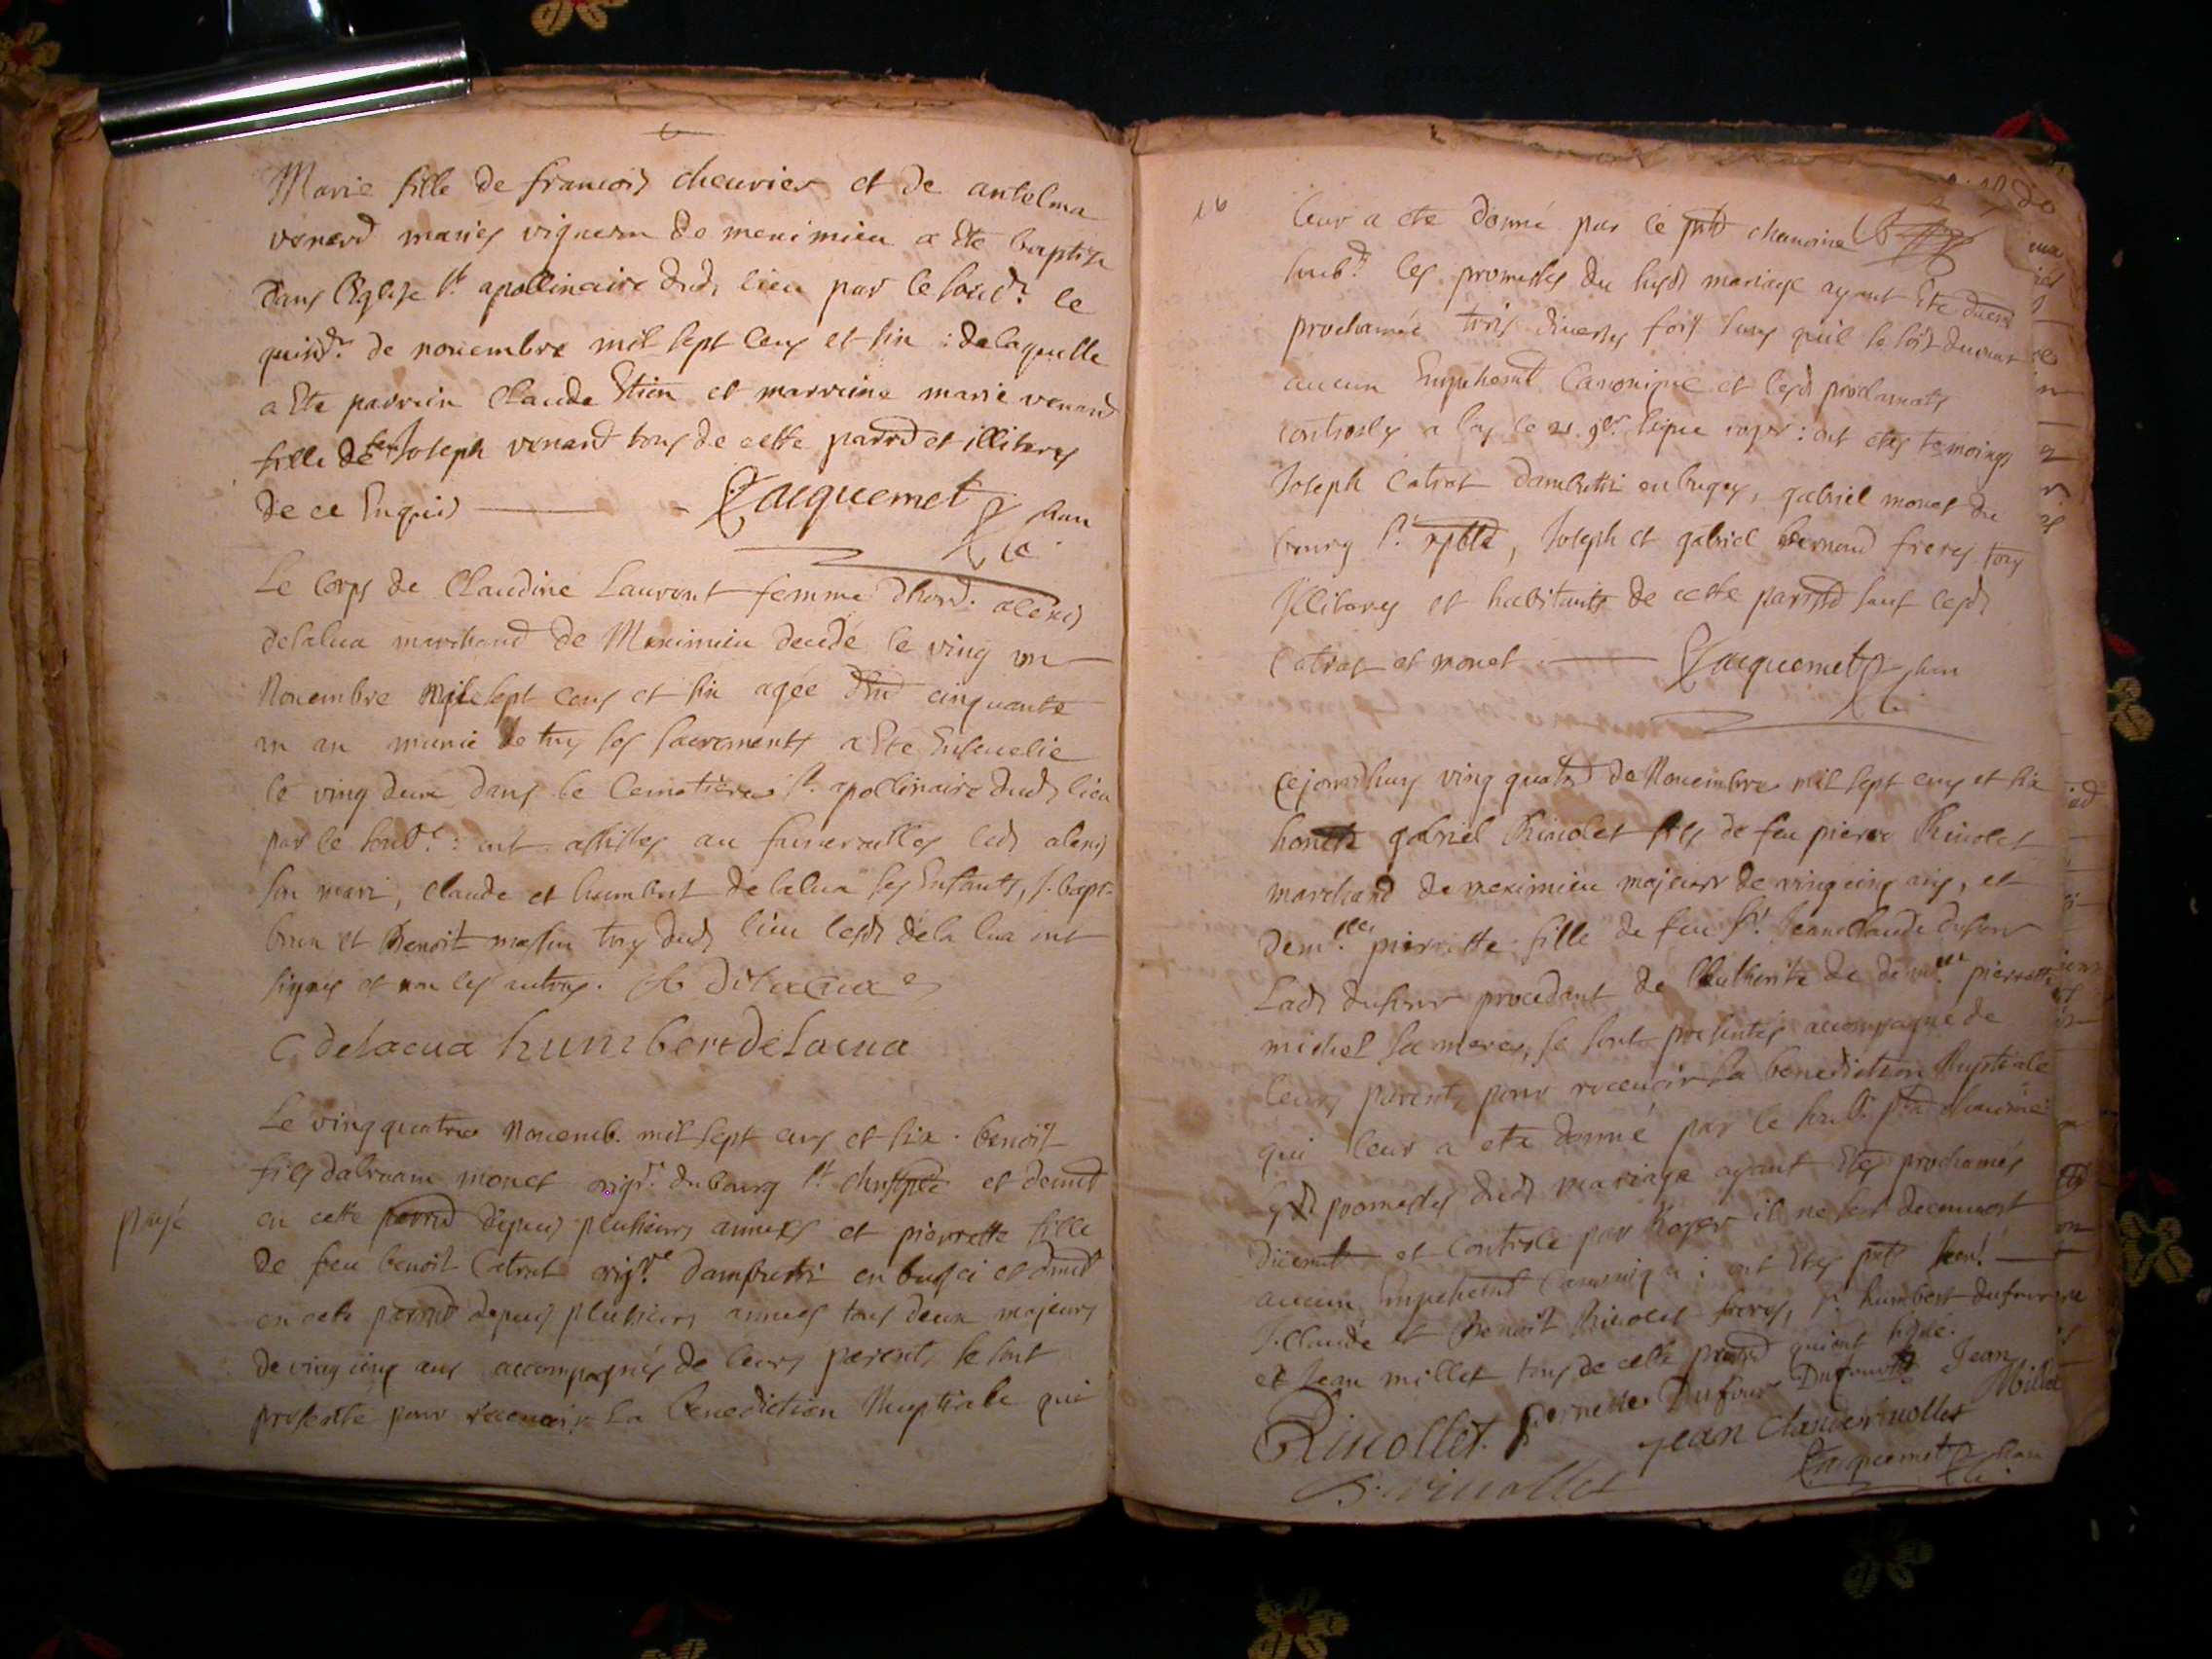 Marie fille de francois cheurier et de antelma
venard maries vigneron de meximieu a ete baptise
dans l'Eglise st. apollinaire dud. lieu par le soub.r le
quinz.e de nouembre mil sept cens et six : de laquelle
a Ete parrein Claude Etien et marreine marie venard
fille de feu Joseph venard tous de cette parr et illiteres
de ce Enquis Jacquemet chan
Le Corps de Claudine Laurent femme d'hon. alexis
delalua marchand de Meximieu decedé le ving un
Nouembre mil sept cens et six agée cinquante
un an munie de tous ses sacrements a Ete Enseuelie
le ving deux dans le Cemetiere st. apollinaire dud. lieu
par le soub.e : ont assistes au funerailles led. alexis
son mari, Claude et humbert delalua ses Enfants, J. bapt.
brun et Benoit massin tous dud. lieu lesd. dela lua ont
signes et non les autres.
C delacua humbert delacua
Le ving quatre Nouemb. mil sept cens et six . benoit
fils dabraam monet orig.r du bourg st. chrisple et demt
en cette parr depuis plusieurs années et pierrette fille
payé
de feu benoit Catrat orig.re dambutri en bugei et demt
en cete parr depuis plusieurs annees tous deux majeurs
de ving cinq ans accompagnés de leurs parents se sont
presente pour receuoir la benediction Nuptiale qui
16
leur a ete donné par le chanoine
soub.e les promesses du susd. mariage ayant Ete
proclamée trois diuerses fois sans qu'il se soit
aucun Empechemt Canonique et lesd. proclamats
controles a le 21. 9br. signe roger : ont etes temoings
Joseph Catrat dambutri en bugey, gabriel monet du
bourg st. , Joseph et gabriel bernard freres tous
Illiteres et habitants de cette parr sauf lesd.
Catrat et monet Jacquemet chan
Cejourdhuy ving quatre de Nouembre mil sept cens et six
gabriel Riuolet fils de feu pierre Riuolet
marchand de meximieu majeur de ving cinq ans, et
dem.lle pierrette fille de feu Sr. Jean claude dufour
Lad. dufour procedant de l'authorite de dem.lle pierrette
michel sa mere, se sont presentés accompagné de
leurs parents pour receuoir la benediction Nuptiale
qui leur a ete donné par le soub. chanoine
promesses dud. mariage ayant Etes proclamés
et Controle par Roger il ne s'est decouuert
aucun Empechemt Canoniqu : ont Etes
J. claude et Benoit Riuolet freres, Sr. humbert dufour
et Jean millet tous de cette qui ont signé.
Riuollet. pierrette Dufour Dufour Jean Millet
Jean Clauderiuollet
B. riuollet
Jacquemet chan